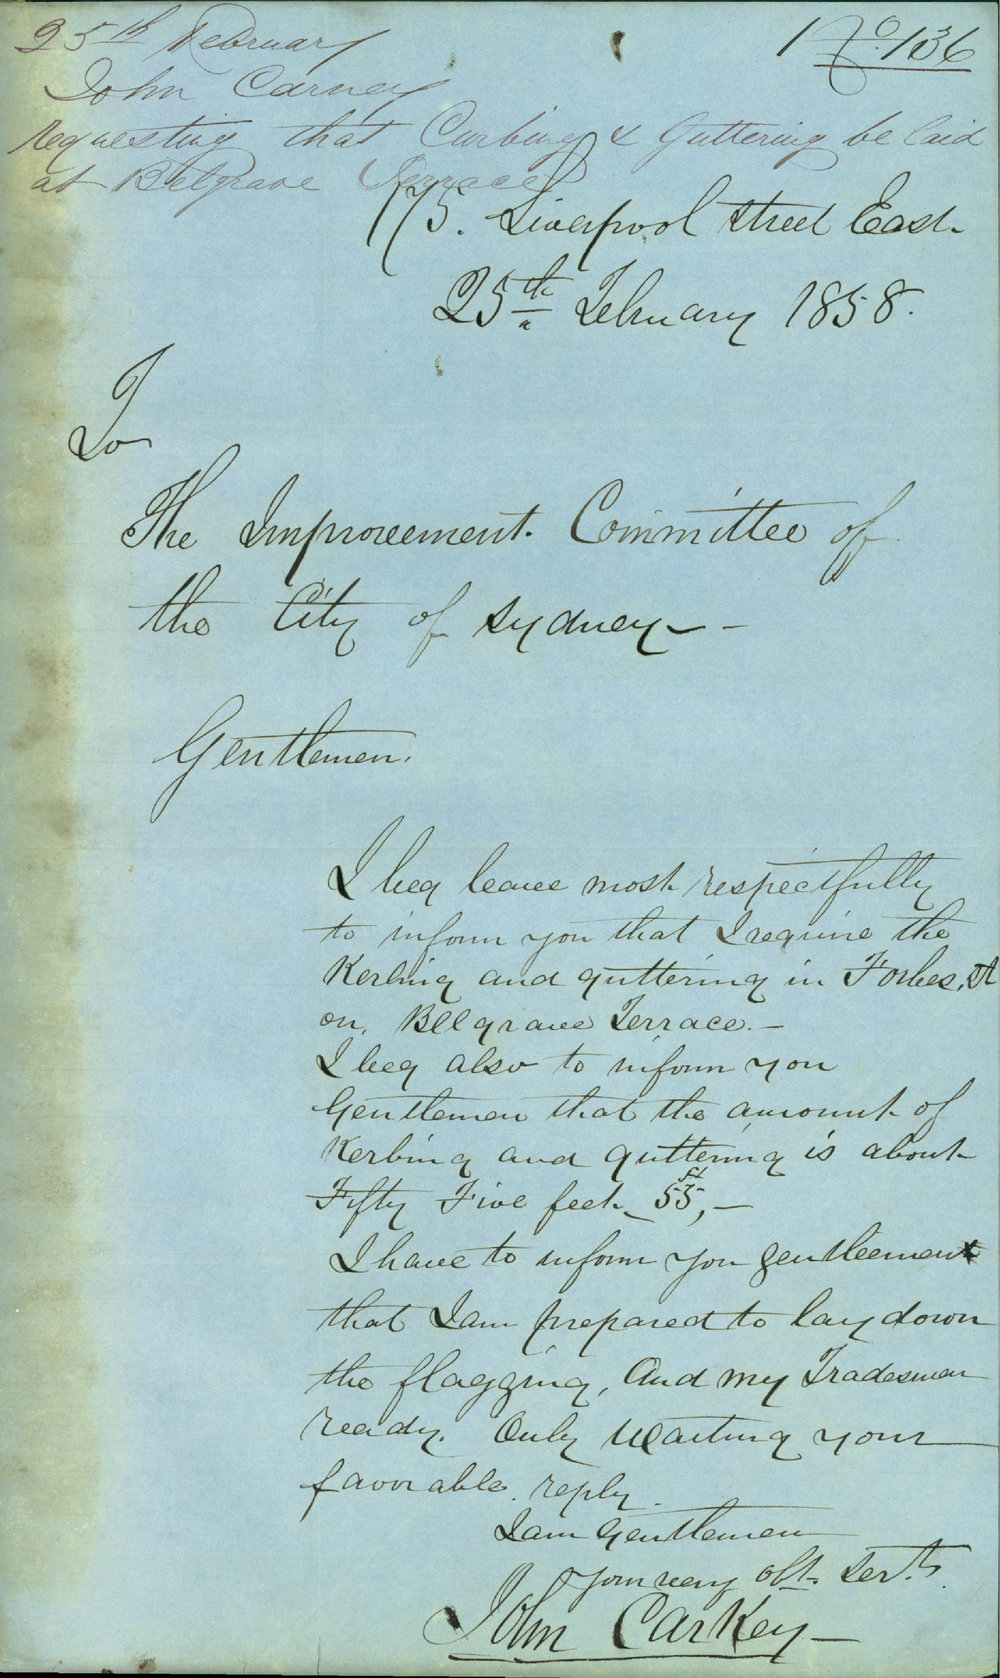 25th February
No. 136
John Carney
requesting that Curbing & Guttering be laid
at Belgrave Terrace
175. Liverpool street East.
25th February 1858.
To
The Improveement. Committee of
the City of Sydney -
Gentlemen.
I beg leave most respectfully
to inform you that I require the
Kerbing and guttering in Forbes. St
on, Bellgrave Terrace. -
I beg also to inform you
Gentlemen that the amount of
Kerbing and guttering is about
Fifty Five feet - 55 ft, -
I have to inform you gentleemen
that I am prepared to lay down
the flagging, And my Tradesman
ready. Only Waiting your
favorable. reply.
I am Gentlemen
Your very obt. Servt.
John Carkey -